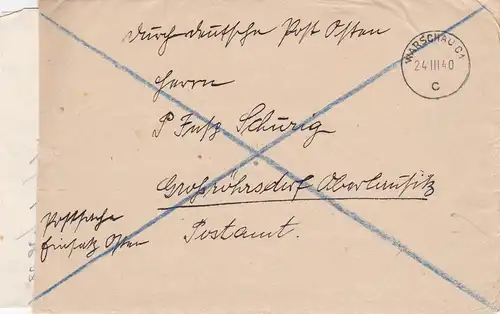 durch deutsche Post Osten
WARSCHAU C1
24.III.40
c
Herrn
P. Fritz Schurig
Großröhrsdorf Oberlausitz
Postamt.
Postsache
Einsatz Osten